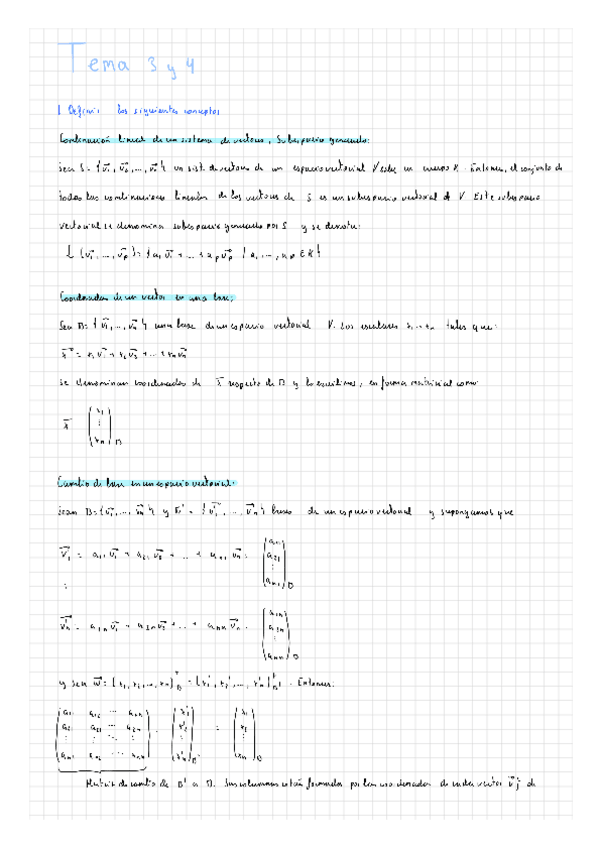 Tema 3 y 4
1 Definir los siguientes conceptos
Combinación lineal de un sistema de vectores, Subespacio generado:
Sea S = {v₁, v₂, ..., vₚ} un sist. de vectores de un espacio vectorial V sobre un cuerpo K. Entonces, el conjunto de
todas las combinaciones lineales de los vectores de S es un subespacio vectorial de V. Este subespacio
vectorial se denomina subespacio generado por S y se denota:
L {v₁, ..., vₚ} = {a₁v₁ + ... + aₚvₚ / a₁, ..., aₚ ∈ K}
Coordenadas de un vector en una base:
Sea B = {v₁, ..., vₙ} una base de un espacio vectorial V. Los escalares x₁ ... xₙ tales que:
x = x₁v₁ + x₂v₂ + ... + xₙvₙ
se denominan coordenadas de x respecto de B y lo escribimos, en forma matricial como
x (x₁ ⋮ xₙ)B
Cambio de base en un espacio vectorial:
Sean B = {v₁, ..., vₙ} y B' = {v₁', ..., vₙ'} bases de un espacio vectorial y supongamos que
v₁' = a₁₁v₁ + a₂₁v₂ + ... + aₙ₁vₙ = (a₁₁ a₂₁ ⋮ aₙ₁)B
⋮
vₙ' = a₁ₙv₁ + a₂ₙv₂ + ... + aₙₙvₙ = (a₁ₙ a₂ₙ ⋮ aₙₙ)B
y sea w = (x₁, x₂, ..., xₙ)ᵗB = (x₁', x₂', ..., xₙ')ᵗB' . Entonces:
(a₁₁ a₁₂ ... a₁ₙ
a₂₁ a₂₂ ... a₂ₙ
⋮
aₙ₁ aₙ₂ ... aₙₙ) · (x₁' x₂' ⋮ xₙ')B' = (x₁ x₂ ⋮ xₙ)B
Matriz de cambio de B' a B. Sus columnas están formadas por las coordenadas de cada vector vⱼ' de